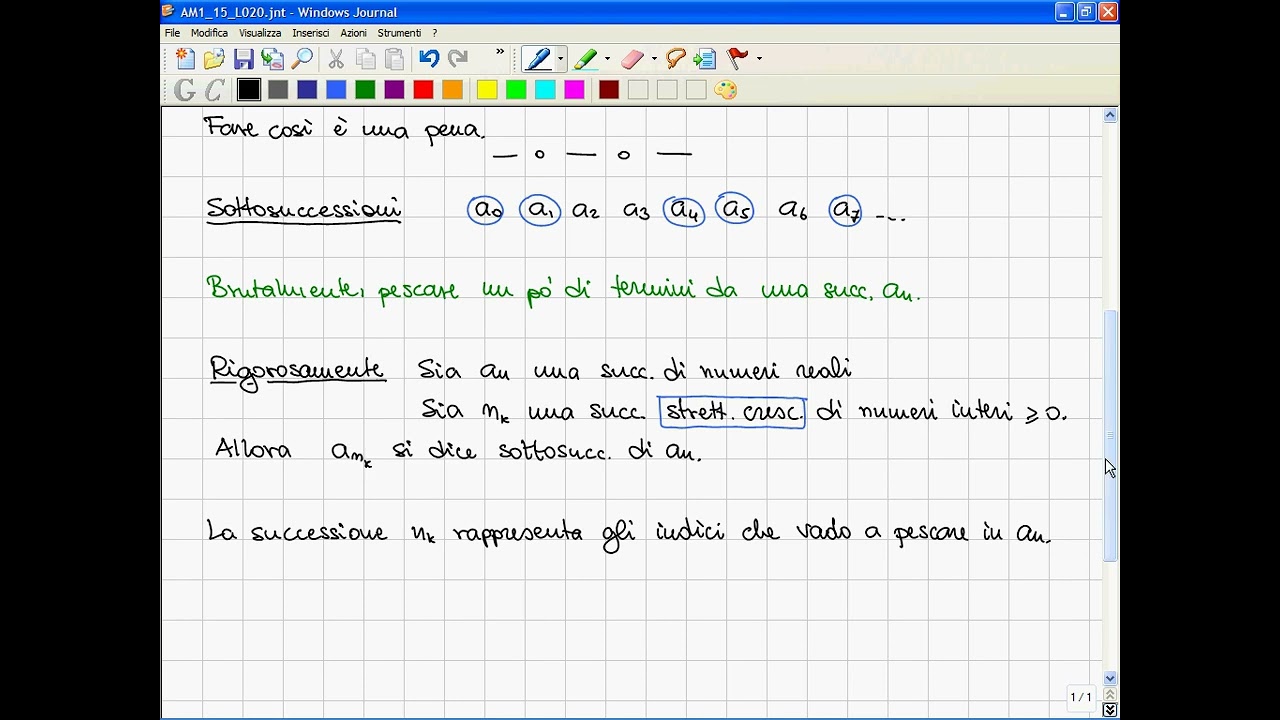 AM1_15_L020.jnt - Windows Journal
File Modifica Visualizza Inserisci Azioni Strumenti ?
Fare così è una pena.
— o — o —
Sottosuccessioni a₀ a₁ a₂ a₃ a₄ a₅ a₆ a₇ ....
Brutalmente, pescare un pò di termini da una succ. aₙ.
Rigorosamente Sia aₙ una succ. di numeri reali
Sia nₖ una succ. strett. cresc. di numeri interi ≥ 0.
Allora a_{nₖ} si dice sottosucc. di aₙ.
La successione nₖ rappresenta gli indici che vado a pescare in aₙ.
1 / 1